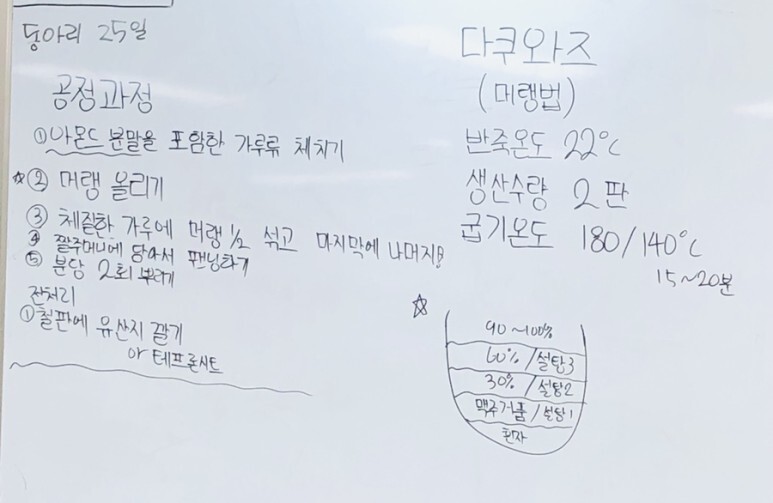 동아리 25일
공정과정
①아몬드 분말을 포함한 가루류 체치기
☆② 머랭 올리기
③ 체질한 가루에 머랭 1/2 섞고 마지막에 나머지!
④ 짤주머니에 담아서 팬닝하기
⑤ 분당 2회 뿌리기
전처리
①철판에 유산지 깔기
or 테프론시트
다쿠와즈
(머랭법)
반죽온도 22℃
생산수량 2판
굽기온도 180/140℃
15~20분
☆
90~100%
60%/설탕3
30%/설탕2
맥주거품/설탕1
흰자